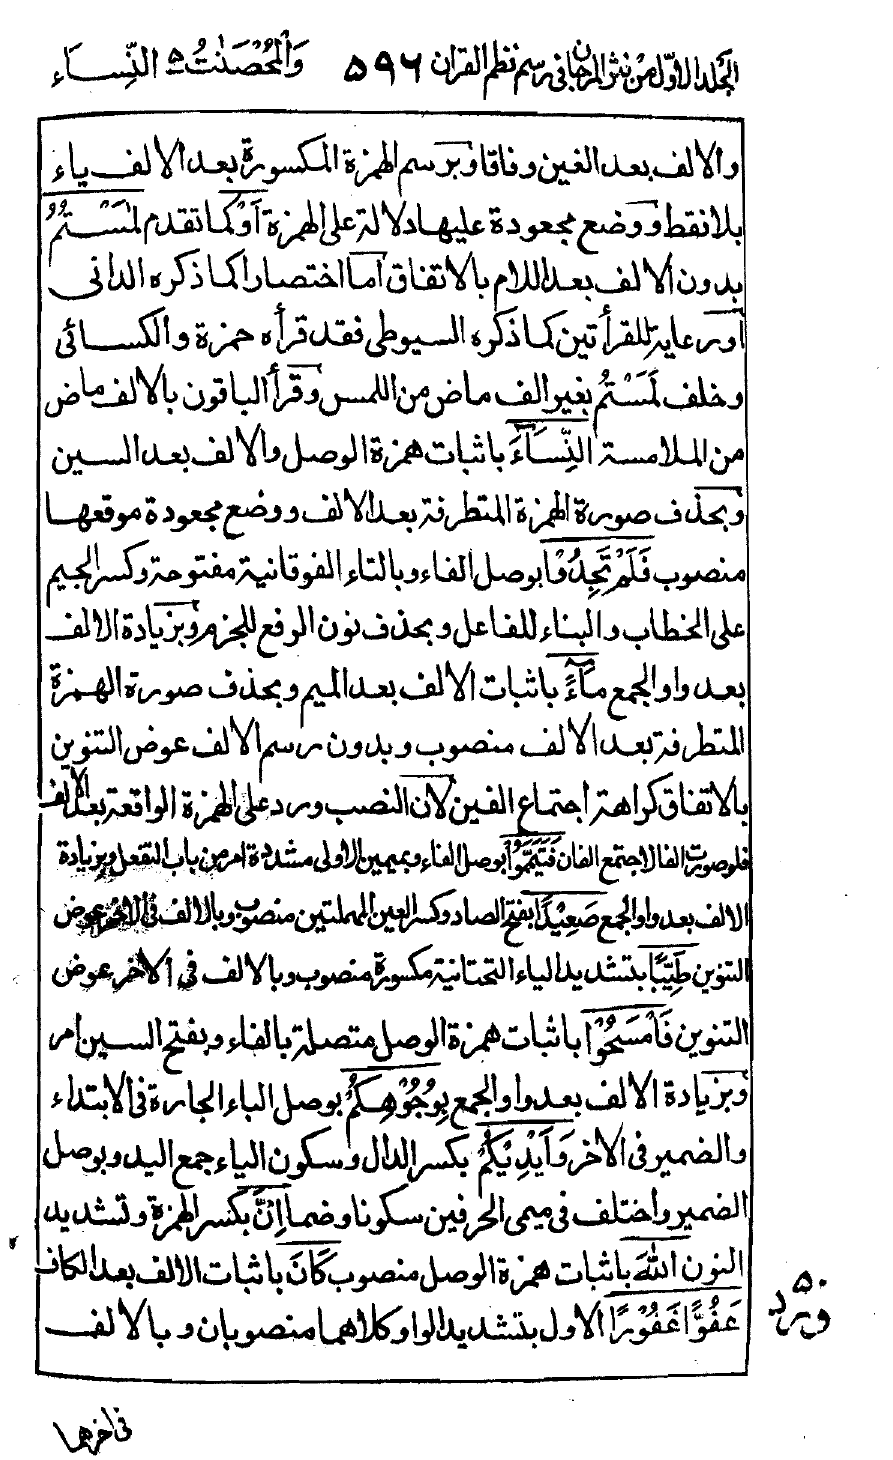 الجلد الاول من نثر المرجان فی رسم نظم القران ۵۹۶ وَالْمُحْصَنٰتُ ۵ النِّسَاء
والالف بعد الغين وفاقا وبرسم الهمزة المكسورة بعد الالف ياء
بلا نقط ووضع مجعودة عليها دلالة على الهمزة اَوْ كما تقدم لٰمَسْتُمُ
بدون الالف بعد اللام بالاتفاق اما اختصارا كما ذكره الدانی
او رعاية للقرأتين كما ذكره السيوطی فقد قرأه حمزة والكسائی
وخلف لَمَسْتُمُ بغير الف ماض من اللمس وقرأ الباقون بالالف ماض
من الملامسة النِّسَآءَ باثبات همزة الوصل والالف بعد السين
وبحذف صورة الهمزة المتطرفة بعد الالف ووضع مجعودة موقعها
منصوب فَلَمْ تَجِدُوْا بوصل الفاء وبالتاء الفوقانية مفتوحة وكسر الجيم
على الخطاب والبناء للفاعل وبحذف نون الرفع للجزم وبزيادة الالف
بعد واو الجمع مَآءً باثبات الالف بعد الميم وبحذف صورة الهمزة
المتطرفة بعد الالف منصوب وبدون رسم الالف عوض التنوين
بالاتفاق كراهة اجتماع الفين لان النصب ورد على الهمزة الواقعة بعد الالف
فلو صورت الفا لاجتمع الفان فَتَيَمَّمُوْا بوصل الفاء وبميمين الاولى مشددة امر من باب التفعل وبزيادة
الالف بعد واو الجمع صَعِيْدًا بفتح الصاد وكسر العين المهملتين منصوب وبالالف فی الاخر عوض
التنوين طَيِّبًا بتشديد الياء التحتانية مكسورة منصوب وبالالف فی الاخر عوض
التنوين فَامْسَحُوْا باثبات همزة الوصل متصلة بالفاء وبفتح السين امر
وبزيادة الالف بعد واو الجمع بِوُجُوْهِكُمْ بوصل الباء الجارة فی الابتداء
والضمير فی الاخر وَاَيْدِيْكُمْ بكسر الدال وسكون الياء جمع اليد وبوصل
الضمير واختلف فی ميمی الحرفين سكونا وضما اِنَّ بكسر الهمزة وتشديد
النون اللّٰهَ باثبات همزة الوصل منصوب كَانَ باثبات الالف بعد الكاف
عَفُوًّا غَفُوْرًا الاول بتشديد الواو كلاهما منصوبان وبالالف
فی اخرهما